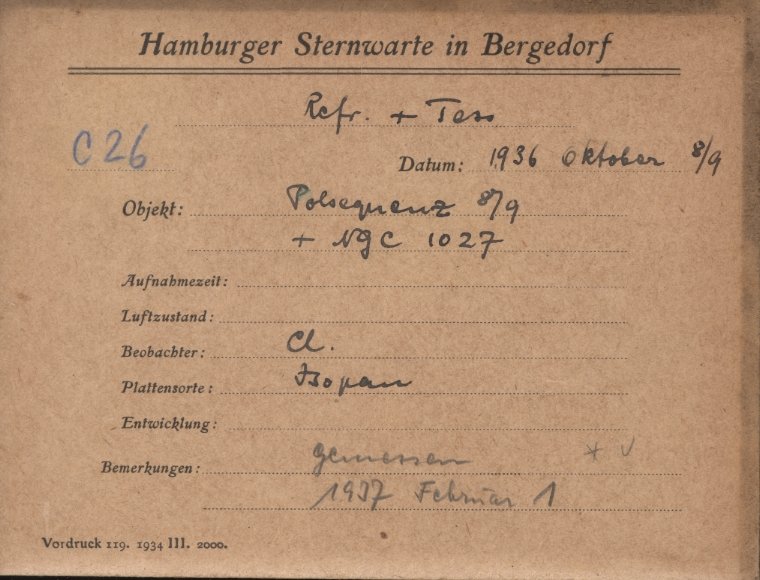 Hamburger Sternwarte in Bergedorf
Refr. + Tess
C 26
Datum: 1936 Oktober 8/9
Objekt: Polsequenz 8/9
+ NGC 1027
Aufnahmezeit:
Luftzustand:
Beobachter: Cl.
Plattensorte: Isopan
Entwicklung:
Bemerkungen: gemessen * v
1937 Februar 1
Vordruck 119. 1934 III. 2000.